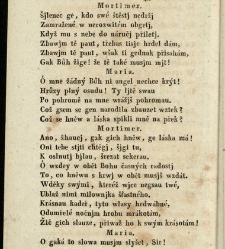 Mortimer.
Šjlenec ge, kdo swé štěstj nedržj
Zamračené w nerozwitém obgetj.
Když mu s nebe do náručj přiletj.
Zbawjm tě paut, tisjcu tisje hrdel dám,
Zbawjm tě paut, wšak ti gednau přisahám,
Gak Bůh žige! že tě také musjm mjt!
Maria.
O mne žádný Bůh ni angel nechce krýt!
Hrůzy plný osudu! Ty ljtě swau
Po pohromě na mne wrážjš pohromau.
Což gsem se gen narodila zbauzet wztek?
Coź se hněw a láska spikli mně na wěk?
Mortimer.
Ano, žhaucj, gak gich hněw, ge láska má!
Oni tebe stjti chtěgj, šjgi tu,
K oslnutj bjlau, štrzat sekerau.
Ó wzdey w obět Bohu časných radostj
To, co hněwu s krwj w obět musjš wzdát.
Wděky swými, kterěž wjce negsau twé,
Oblaž nimi milownjka šťastného.
Krásnau kadeř, tyto wlasy hedwábné,
Odumřelé nočnjm hrobu mrákotám,
Žiť gich slauže, přiwaž ho k swým krásotám!
Maria.
O gaká to slowa musjm slyšet, Sir!